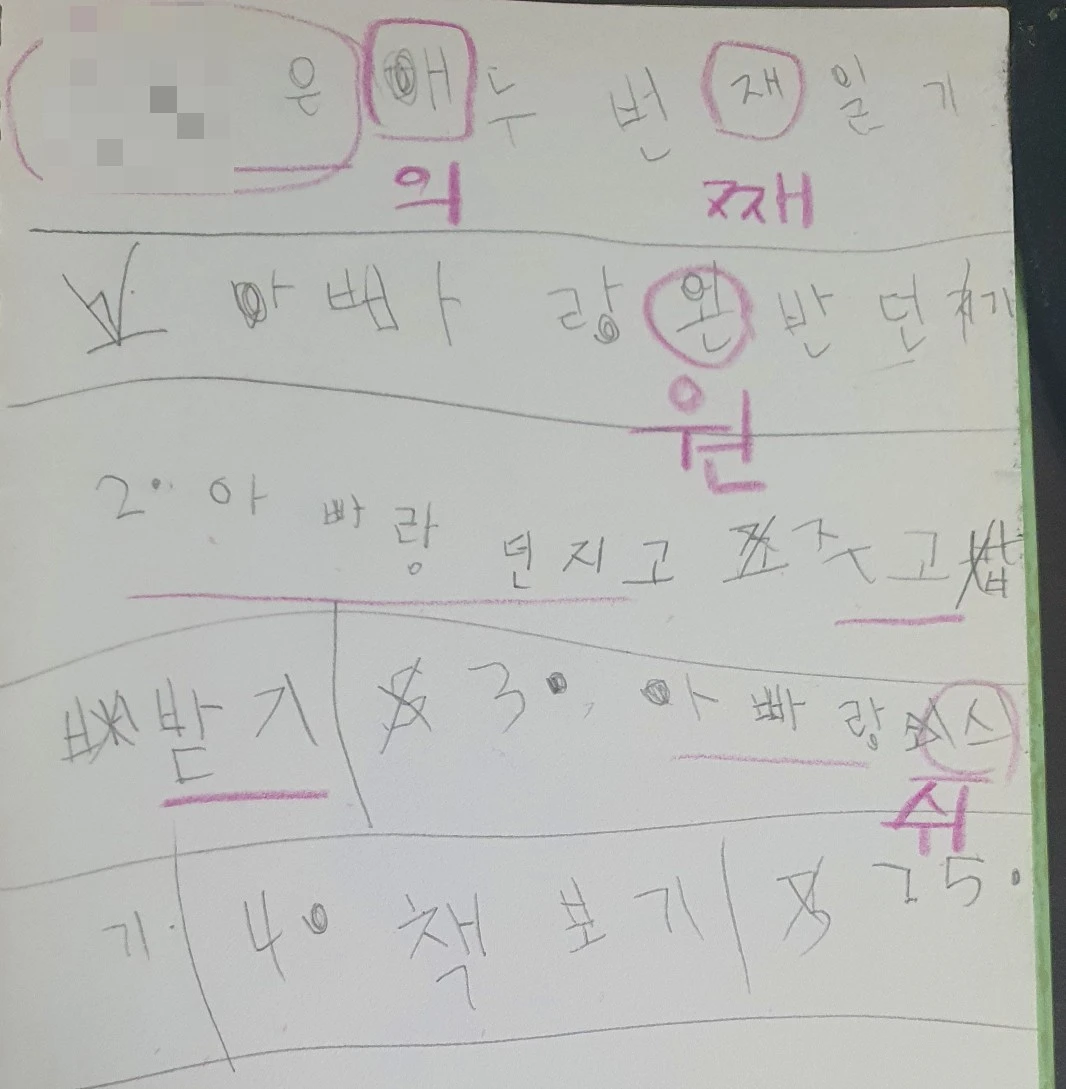 은애 두 번 재 일 기
의 째
아빠랑 왼 반 던 기
원
2. 아 빠 랑 던 지 고 주 고
받 기 3. 아 빠 랑 스
쉬
기. 4. 책 보 기 5.